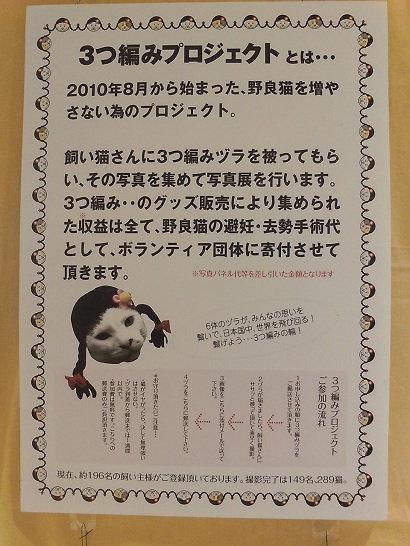 3つ編みプロジェクト とは…
2010年8月から始まった、野良猫を増や
さない為のプロジェクト。
飼い猫さんに3つ編みヅラを被ってもら
い、その写真を集めて写真展を行います。
3つ編み・・のグッズ販売により集められ
た収益は全て、野良猫の避妊・去勢手術代
として、ボランティア団体に寄付させて
頂きます。
※写真パネル代等を差し引いた金額となります
6体のヅラが、みんなの思いを
繋いで、日本国中、世界を飛び回る!
繋げよう…3つ編みの輪!
3つ編みプロジェクト
ご参加の流れ
現在、約196名の飼い主様がご登録頂いております。撮影完了は149名、289猫。